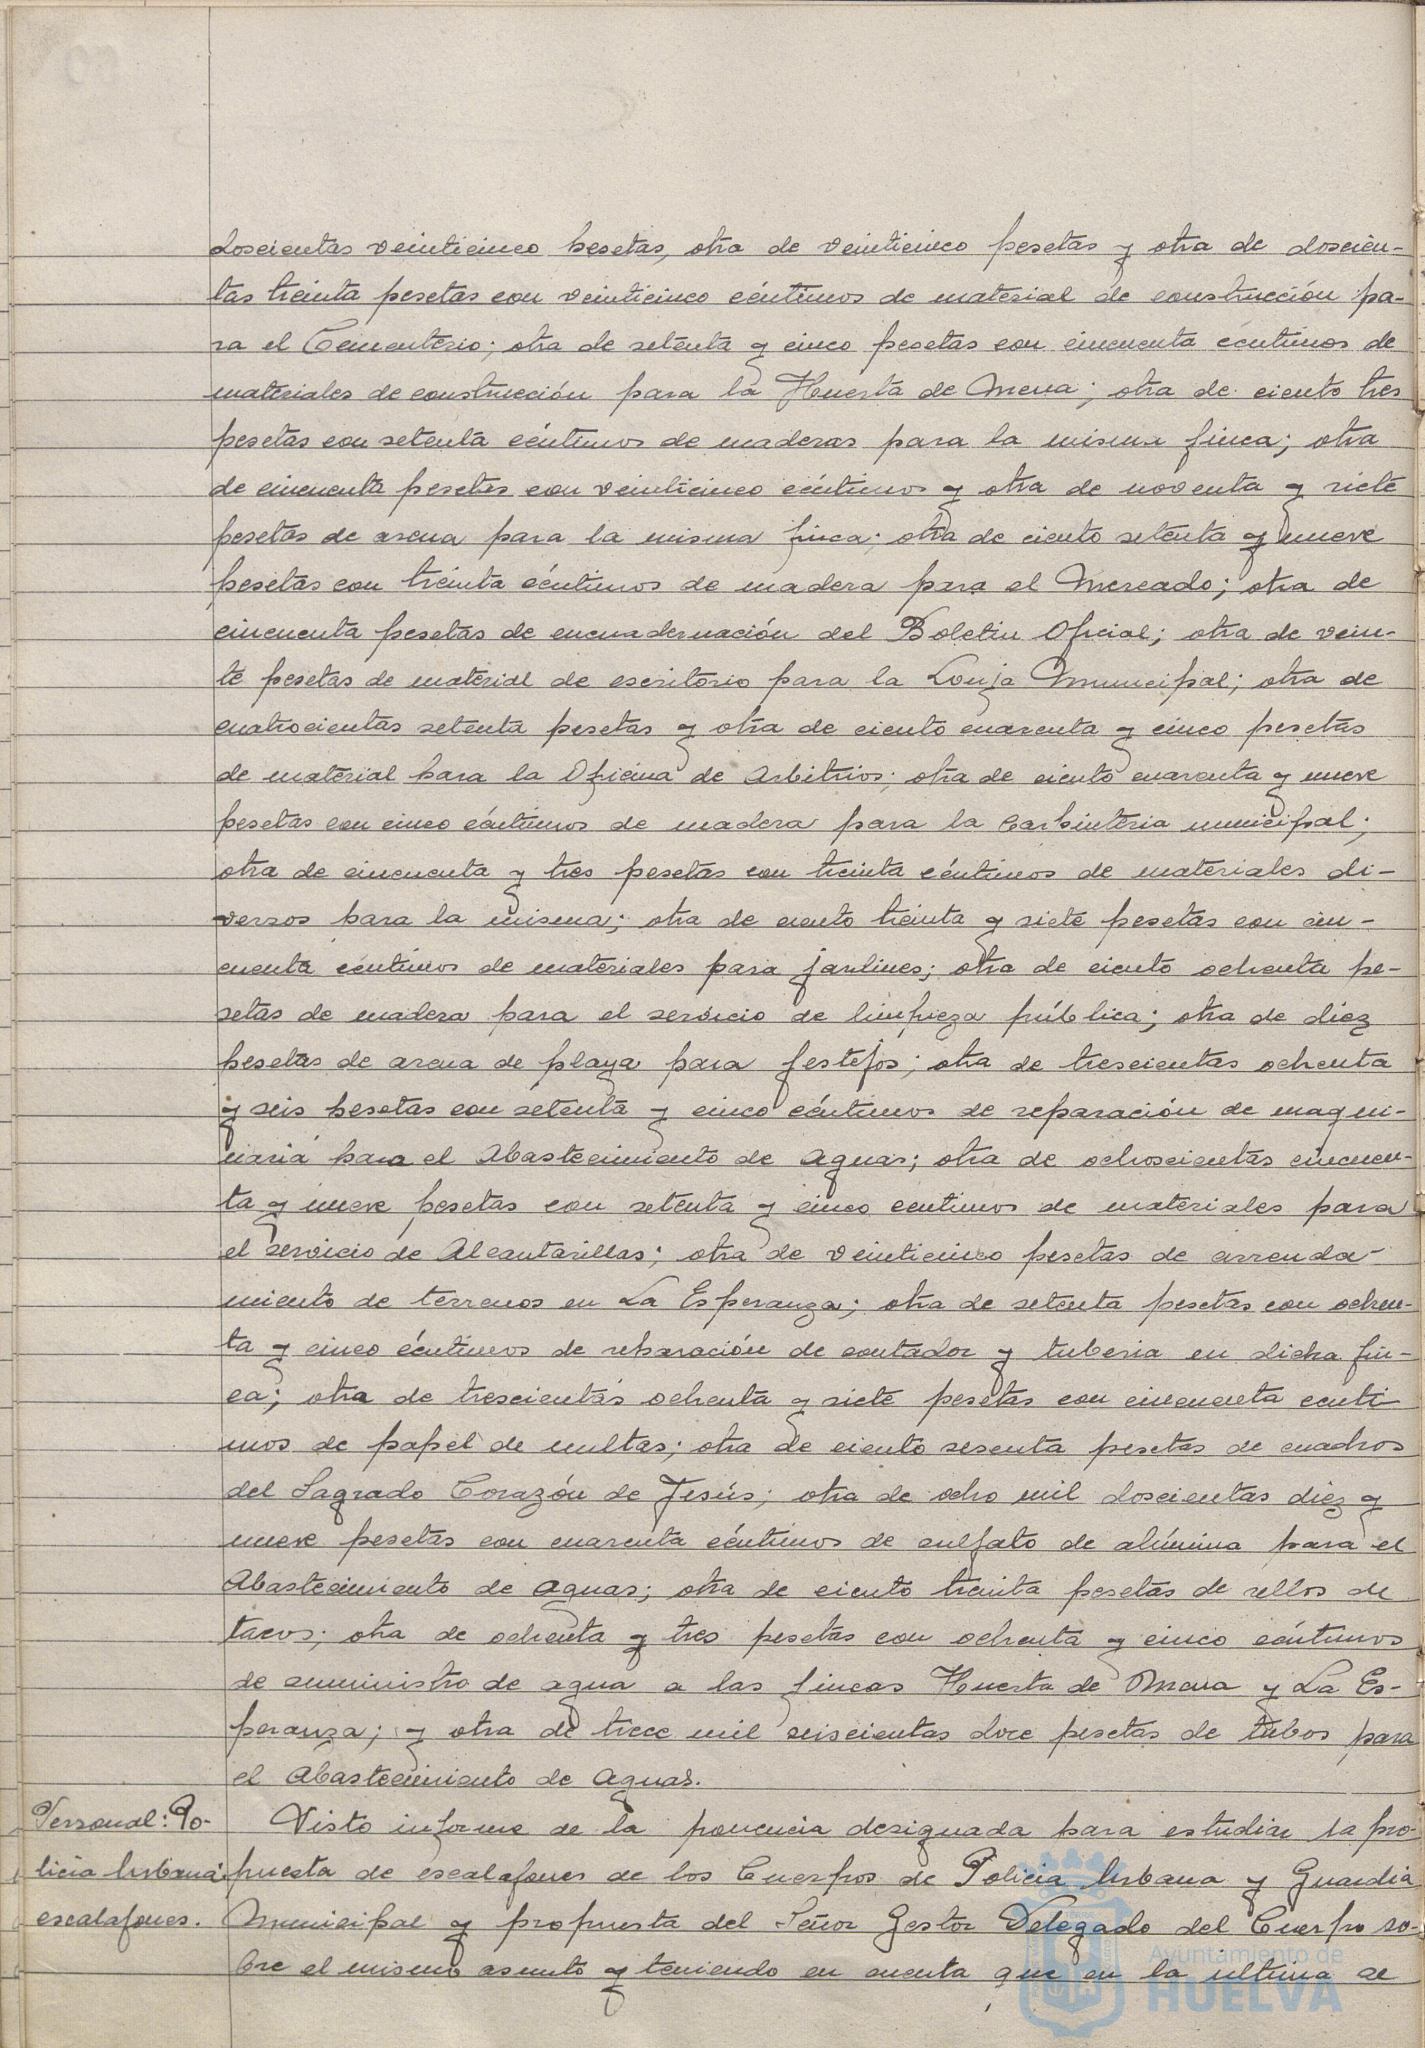 doscientas veinticinco pesetas, otra de veinticinco pesetas y otra de doscien-
tas treinta pesetas con veinticinco céntimos de material de construcción pa-
ra el Cementerio; otra de setenta y cinco pesetas con cincuenta céntimos de
materiales de construcción para la Huerta de Mena; otra de ciento tres
pesetas con setenta céntimos de maderas para la misma finca; otra
de cincuenta pesetas con veinticinco céntimos y otra de noventa y siete
pesetas de arena para la misma finca; otra de ciento setenta y nueve
pesetas con treinta céntimos de madera para el Mercado; otra de
cincuenta pesetas de encuadernación del Boletin Oficial; otra de vein-
te pesetas de material de escritorio para la Lonja Municipal; otra de
cuatrocientas setenta pesetas y otra de ciento cuarenta y cinco pesetas
de material para la Oficina de Arbitrios; otra de ciento cuarenta y nueve
pesetas con cinco céntimos de madera para la carpinteria municipal;
otra de cincuenta y tres pesetas con treinta céntimos de materiales di-
versos para la misma; otra de ciento treinta y siete pesetas con cin-
cuenta céntimos de materiales para jardines; otra de ciento ochenta pe-
setas de madera para el servicio de limpieza pública; otra de diez
pesetas de arena de playa para festejos; otra de trescientas ochenta
y seis pesetas con setenta y cinco céntimos de reparación de maqui-
naria para el Abastecimiento de Aguas; otra de ochoscientas cincuen-
ta y nueve pesetas con setenta y cinco centimos de materiales para
el servicio de Alcantarillas; otra de veinticinco pesetas de arrenda-
miento de terrenos en La Esperanza; otra de setenta pesetas con ochen-
ta y cinco céntimos de reparación de contador y tuberia en dicha fin-
ca; otra de trescientas ochenta y siete pesetas con cincuenta centi-
mos de papel de multas; otra de ciento sesenta pesetas de cuadros
del Sagrado Corazón de Jesús; otra de ocho mil doscientas diez y
nueve pesetas con cuarenta céntimos de sulfato de alúmina para el
Abastecimiento de Aguas; otra de ciento treinta pesetas de sellos de
tacos; otra de ochenta y tres pesetas con ochenta y cinco céntimos
de suministro de agua a las fincas Huerta de Mena y La Es-
peranza; y otra de trece mil seiscientas doce pesetas de tubos para
el Abastecimiento de Aguas.
Personal: Po-
licia Urbana:
escalafones.
Visto informe de la ponencia designada para estudiar la pro-
puesta de escalafones de los Cuerpos de Policia Urbana y Guardia
Municipal y propuesta del Señor Gestor Delegado del Cuerpo so-
bre el mismo asunto y teniendo en cuenta que en la ultima se
Ayuntamiento de
HUELVA